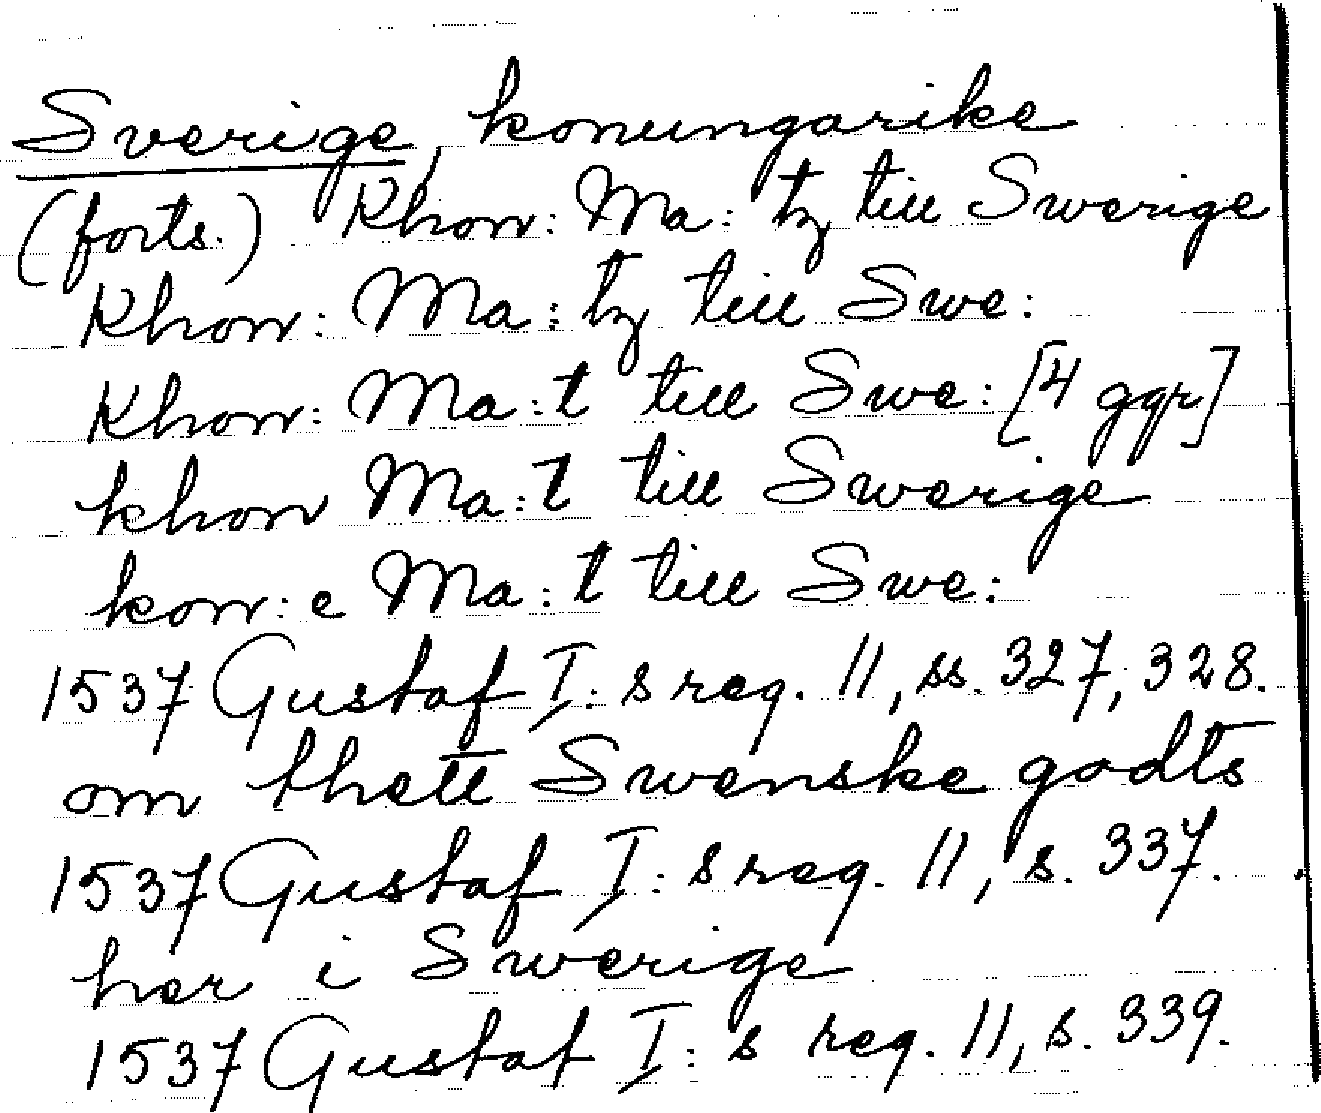 Sverige, konungarike
(forts.) Khon: Ma: tz till Swerige
Khon: Ma: tz till Swe:
Khon: Ma:t till Swe: [4 ggr]
khon Ma:t till Swerige
kon: e Ma:t till Swe:
1537 Gustaf I:s reg. 11, ss. 327, 328.
om thett Swenske godts
1537 Gustaf I:s reg. 11, s. 337.
her i Swerige
1537 Gustaf I:s reg. 11, s. 339.